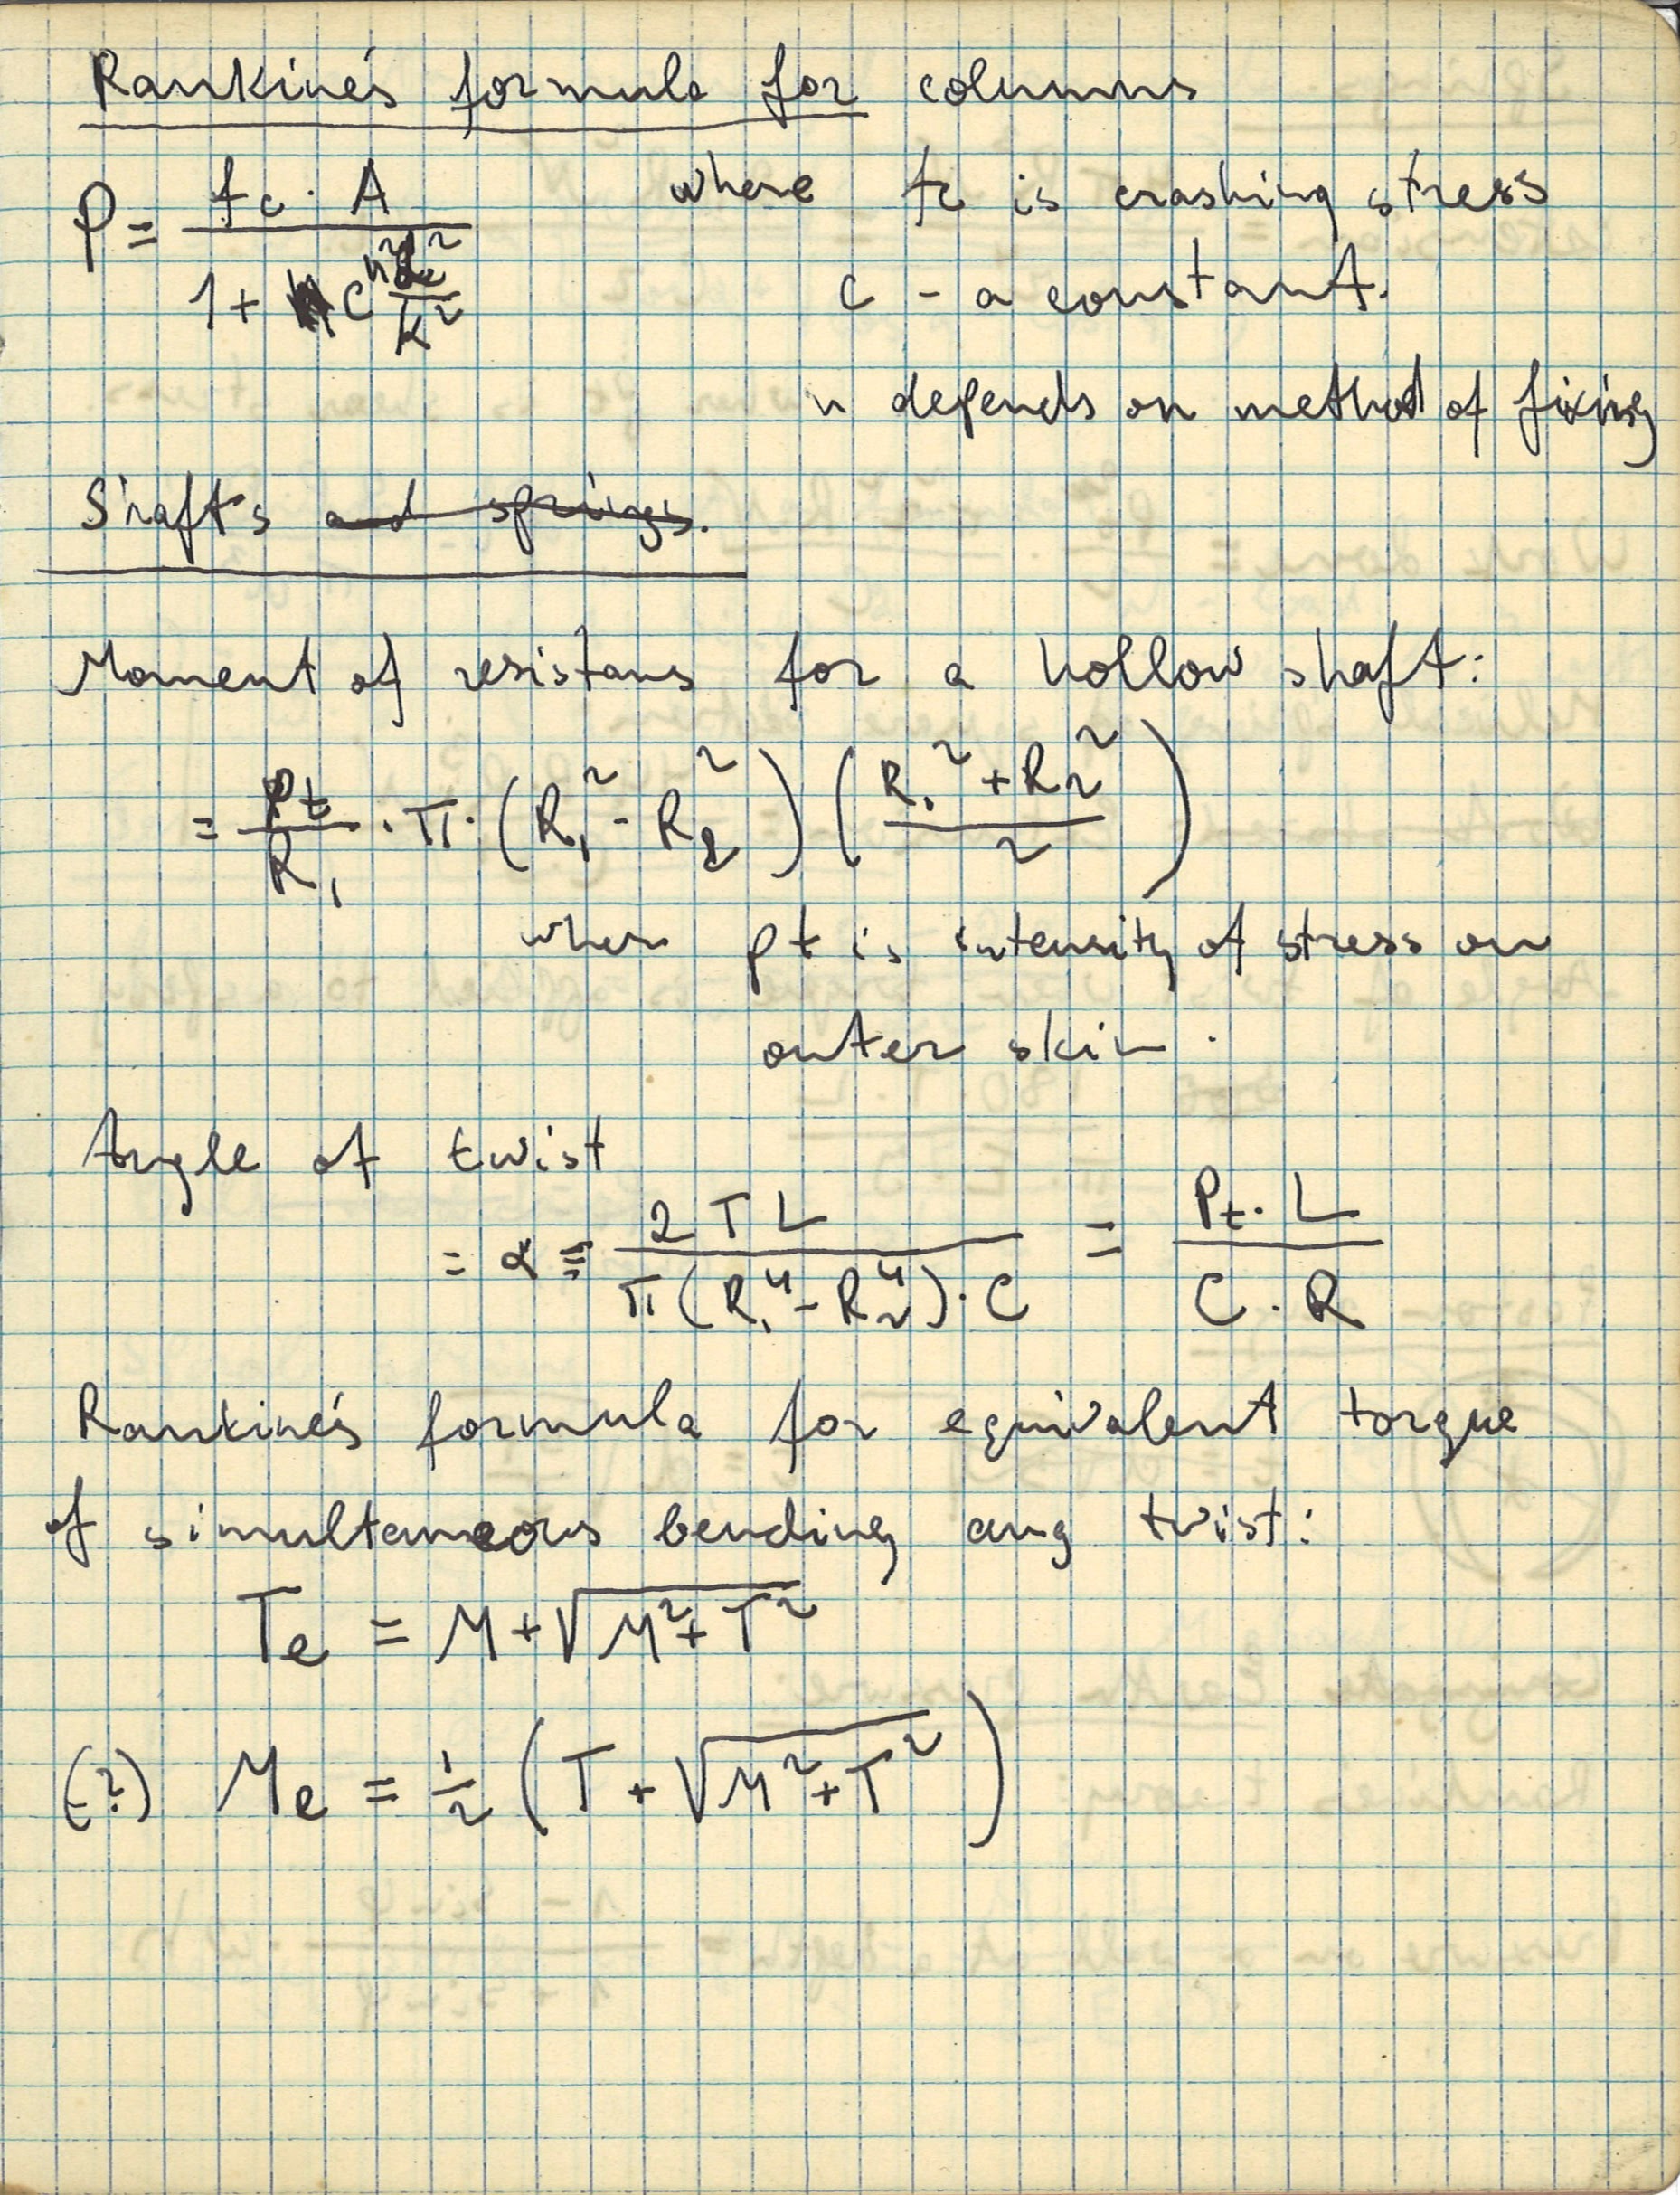 Rankine's formula for columns
P = fc · A / 1 + c n² L² / k² where fc is crashing stress
c - a constant.
n depends on method of fixing
Shafts and springs.
Moment of resistans for a hollow shaft:
= pt / R₁ · π · (R₁² - R₂²) ( R₁² + R₂² / 2 )
when pt is intensity of stress on
outer skin.
Angle of twist
= α = 2 T L / π (R₁⁴ - R₂⁴) · C = Pt · L / C · R
Rankine's formula for equivalent torque
of simultaneous bending ang twist:
Te = M + √M² + T²
(?) Me = ½ ( T + √M² + T² )